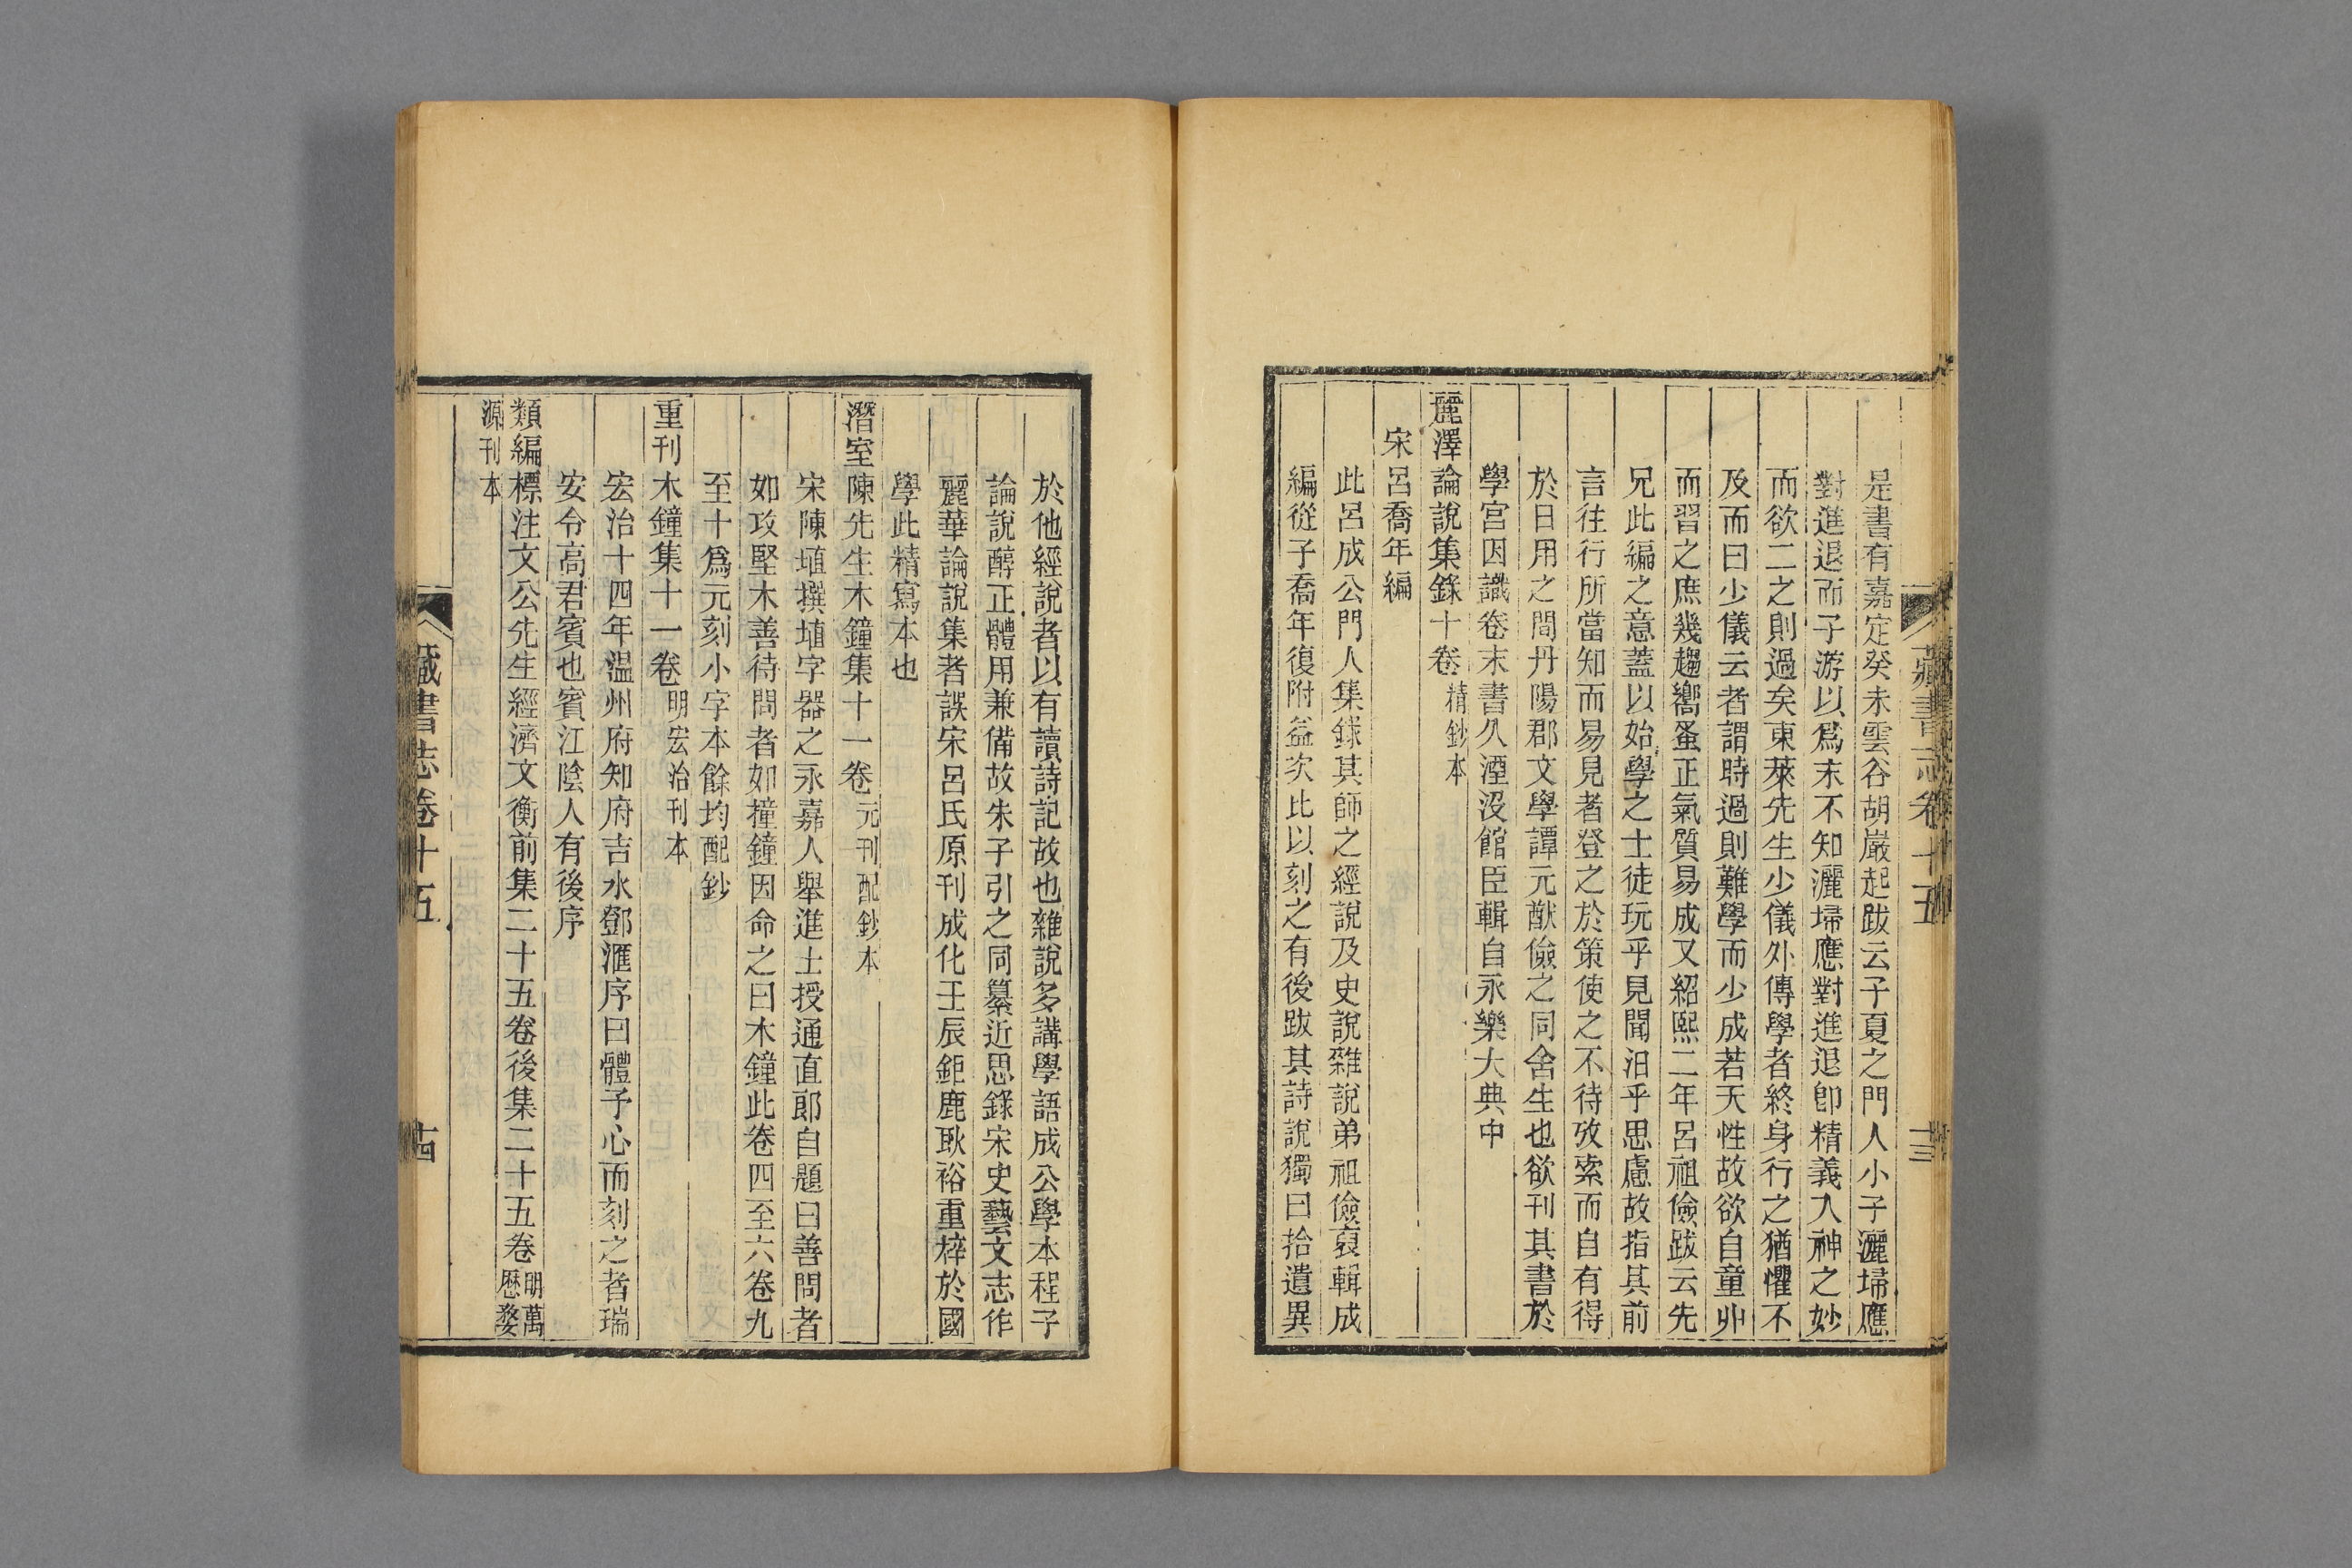 藏書志卷十五
十三
是書有嘉定癸未雲谷胡巖起跋云子夏之門人小子灑埽應
對進退而子游以爲末不知灑埽應對進退卽精義入神之妙
而欲二之則過矣東萊先生少儀外傳學者終身行之猶懼不
及而曰少儀云者謂時過則難學而少成若天性故欲自童丱
而習之庶幾趨嚮蚤正氣質易成又紹熙二年呂祖儉跋云先
兄此編之意蓋以始學之士徒玩乎見聞汩乎思慮故指其前
言往行所當知而易見者登之於策使之不待攷索而自有得
於日用之間丹陽郡文學譚元猷儉之同舍生也欲刊其書於
學宮因識卷末書久湮沒館臣輯自永樂大典中
麗澤論說集錄十卷 精鈔本
宋呂喬年編
此呂成公門人集錄其師之經說及史說雜說弟祖儉裒輯成
編從子喬年復附益次比以刻之有後跋其詩說獨曰拾遺異
於他經說者以有讀詩記故也雜說多講學語成公學本程子
論說醇正體用兼備故朱子引之同纂近思錄宋史藝文志作
麗華論說集者誤宋呂氏原刊成化壬辰鉅鹿耿裕重梓於國
學此精寫本也
潛室陳先生木鐘集十一卷 元刊配鈔本
宋陳埴撰埴字器之永嘉人舉進士授通直郎自題曰善問者
如攻堅木善待問者如撞鐘因命之曰木鐘此卷四至六卷九
至十爲元刻小字本餘均配鈔
重刊木鐘集十一卷 明宏治刊本
宏治十四年溫州府知府吉水鄧滙序曰體予心而刻之者瑞
安令高君賓也賓江陰人有後序
類編標注文公先生經濟文衡前集二十五卷後集二十五卷 明萬
歷婺
源刊本
藏書志卷十五
十四